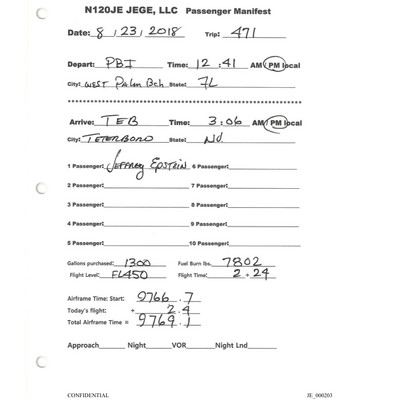 N120JE JEGE, LLC Passenger Manifest
Date: 8/23/2018 Trip: 471
Depart: PBI Time: 12:41 AM/PM local
City: West Palm Bch State: FL
Arrive: TEB Time: 3:06 AM/PM local
City: TETERBORO State: NJ
1 Passenger: Jeffrey Epstein 6 Passenger:
2 Passenger: 7 Passenger:
3 Passenger: 8 Passenger:
4 Passenger: 9 Passenger:
5 Passenger: 10 Passenger:
Gallons purchased: 1300 Fuel Burn lbs. 7802
Flight Level: FL450 Flight Time: 2+24
Airframe Time: Start: 9766.7
Today's flight: + 2.4
Total Airframe Time = 9769.1
Approach Night VOR Night Lnd
CONFIDENTIAL JE_000203